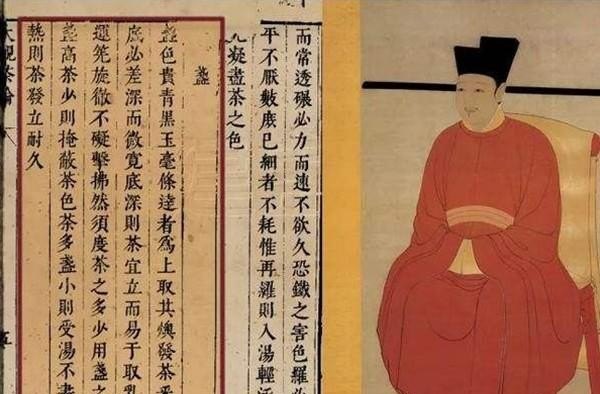 而常透碾必力而速不欲久恐鐵之害色羅必
平不厭數庶已細者不耗惟再羅則入湯輕泛
凝盡茶之色
盞
盞色貴青黑玉毫條達者爲上取其燠發茶采
底必差深而微寬底深則茶宜立而易于取乳
運筅旋徹不礙擊拂然須度茶之多少用盞之
盞高茶少則掩蔽茶色茶多盞小則受湯不盡
熱則茶發立耐久
大觀茶論
五